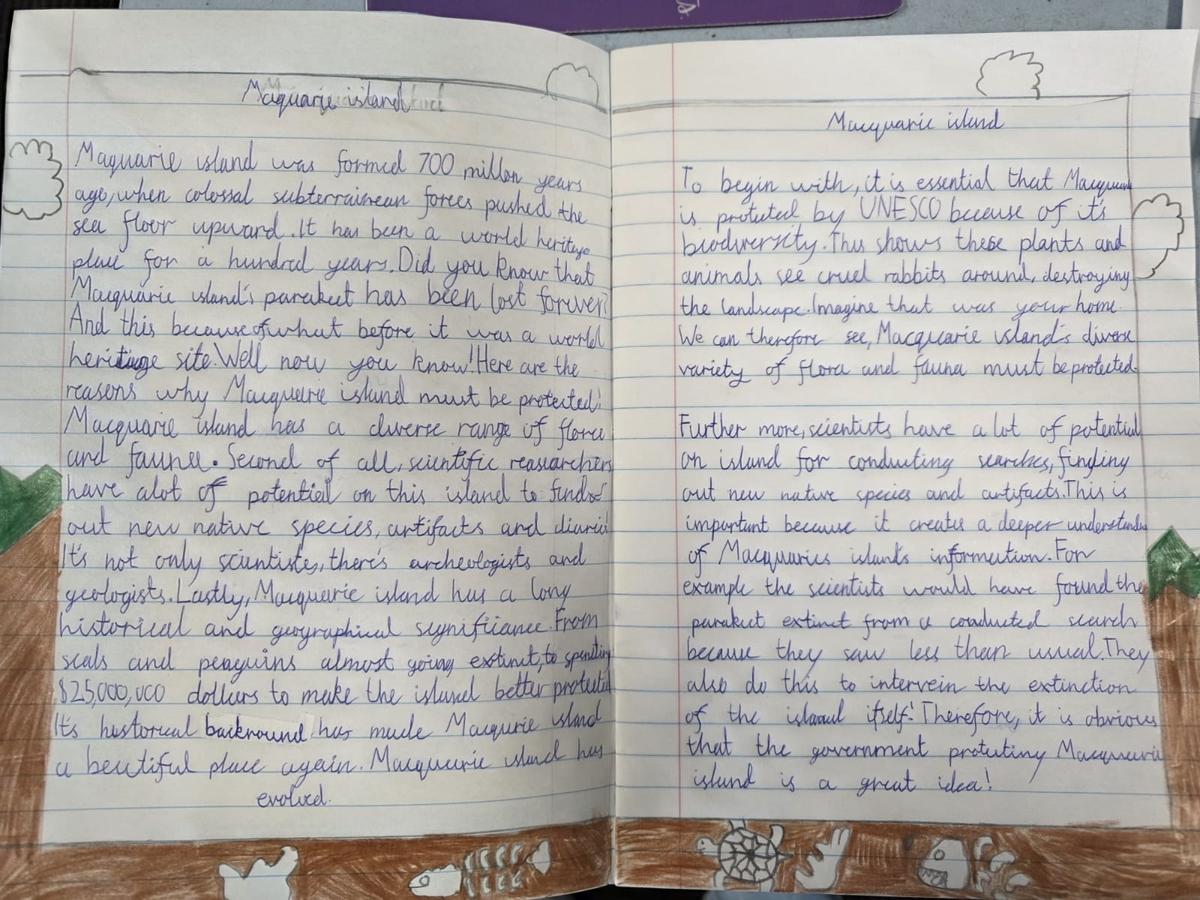 Maquarie island
Maquarie island was formed 700 millon years
ago, when colossal subterrainean forces pushed the
sea floor upward. It has been a world heritage
place for a hundred years. Did you know that
Macquarie island's parakeet has been lost forever?
And this because of what before it was a world
heritage site. Well now you know! Here are the
reasons why Macquarie island must be protected!
Macquarie island has a diverse range of flora
and fauna. Second of all, scientific reasearchers
have alot of potential on this island to find
out new native species, artifacts and
It's not only scientists, there's archeologists and
geologists. Lastly, Macquarie island has a long
historical and geographical significance. From
seals and penguins almost going extinct, to spending
$25,000,000 dollars to make the island better protected
It's historical backround has made Macqurie island
a beutiful place again. Macquarie island has
evolved.
Macquarie island
To begin with, it is essential that Macquarie
is protected by UNESCO because of it's
biodversity. This shows these plants and
animals see cruel rabbits around, destroying
the landscape. Imagine that was your home.
We can therefore see, Macquarie island's diverse
variety of flora and fauna must be protected.
Further more, scientists have a lot of potential
on island for conducting searches, finding
out new native species and artifacts. This is
important because it creates a deeper understanding
of Macquaries island's information. For
example the scientists would have found the
parakeet extinct from a conducted search
because they saw less than usual. They
also do this to intervein the extinction
of the island itself! Therefore, it is obvious
that the government protecting Macquarie
island is a great idea!